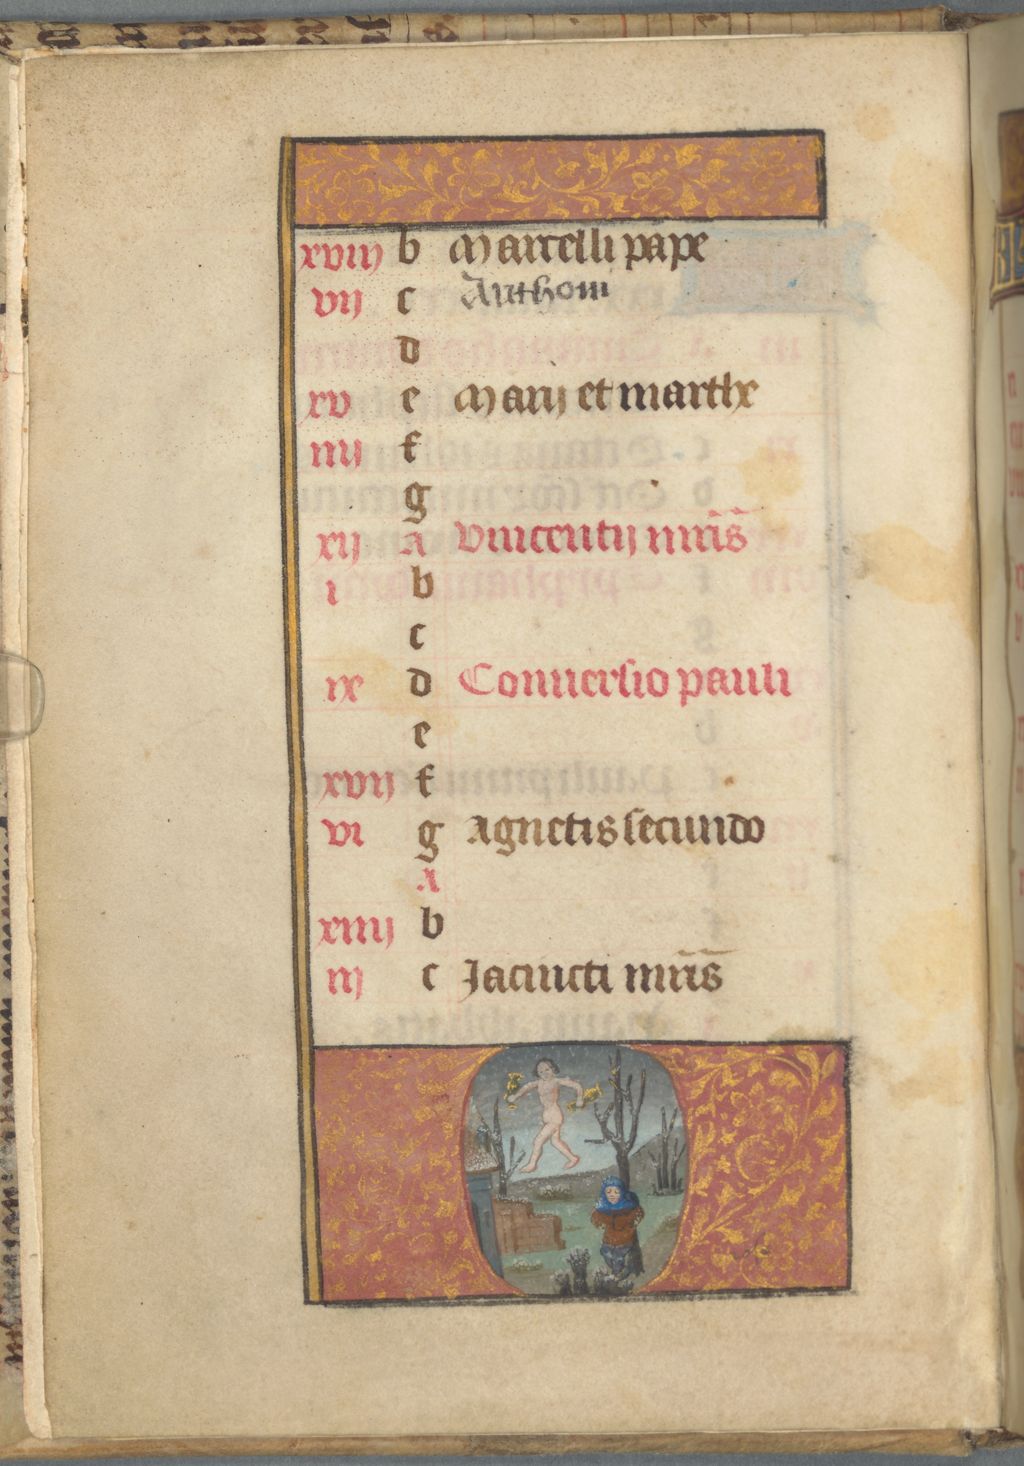 xviij b Marcelli pape
vij c Anthoni
d
xv e Marij et marthe
iiij f
g
xij A vincentij mr̄is
i b
c
ix d Conuersio pauli
e
xvij f
vi g Agnetis secundo
A
xiiij b
iij c Jacincti mr̄is